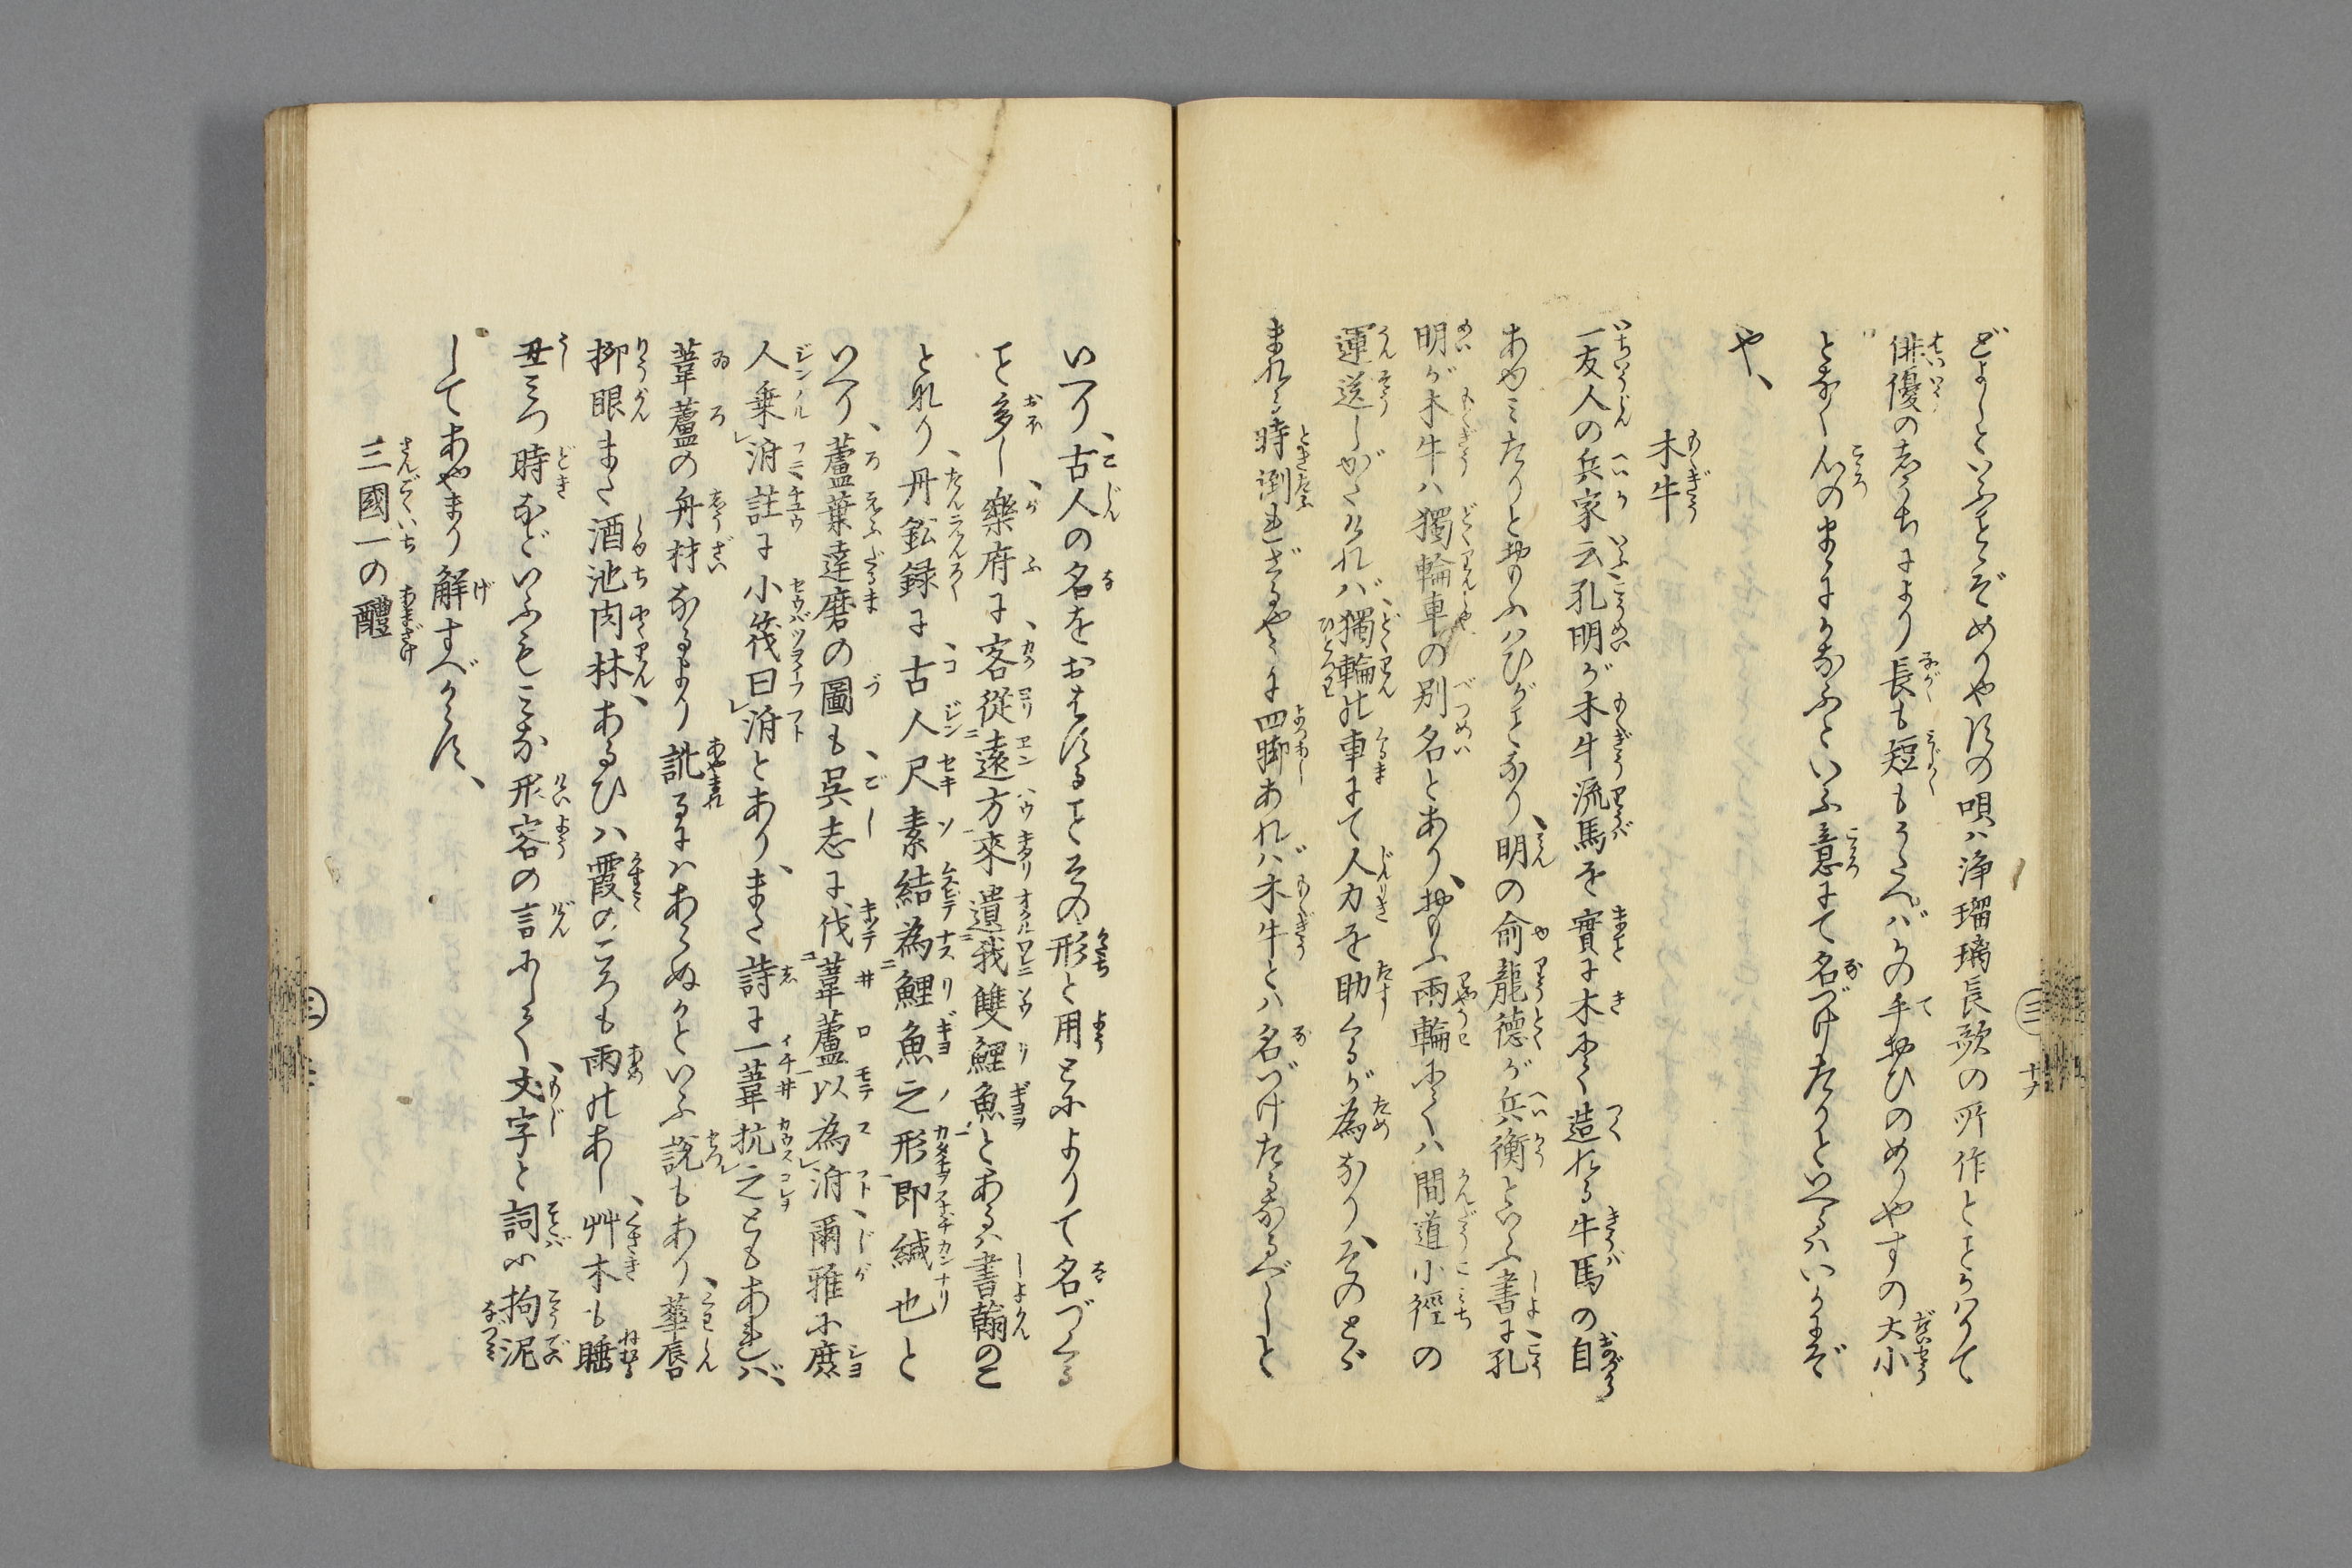 どよしといふことぞめりやすの唄ハ浄瑠璃長歌の所作とことかはりて
俳優のまうちによりて長も短もうたへばその手おひのめりやすの大小
となく心のまゝにかなふといふ意にて名づけたりといへるハいかにぞ
や、
木牛
一友人の兵家云孔明が木牛流馬を實に木にて造れる牛馬の自
あゆミたりとおもふハひがことなり、明の俞龍德が兵衡といふ書に孔
明が木牛ハ獨輪車の别名とあり、おもふ兩輪にてハ間道小徑の
運送しがたければ、獨輪の車にて人力を助くるが為なり、そのとゞ
まれる時倒れざるやうに四脚あれば木牛とハ名づけたるなるべしと
いへり、古人の名をおはするにその形と用とによりて名づくる
こと多し、樂府に、客從遠方來遺我雙鯉魚とあるハ書翰のこ
となり、丹鉛録に、古人尺素結為鯉魚之形即緘也と
いへり、蘆葉達磨の圖も、呉志に伐葦蘆以為泭、爾雅に庶
人乗泭註に小筏曰泭とあり、また詩に一葦抗之ともあれば、
葦蘆の舟材なるより訛るにハあらぬかといふ説もあり、華唇
柳眼また酒池肉林、あるひハ霞のころも雨のあし、艸木も睡
丑ミつ時などいふもミな形容の言にして、文字と詞に拘泥
してあやまり解すべからず、
三國一の醴
三
十六
三